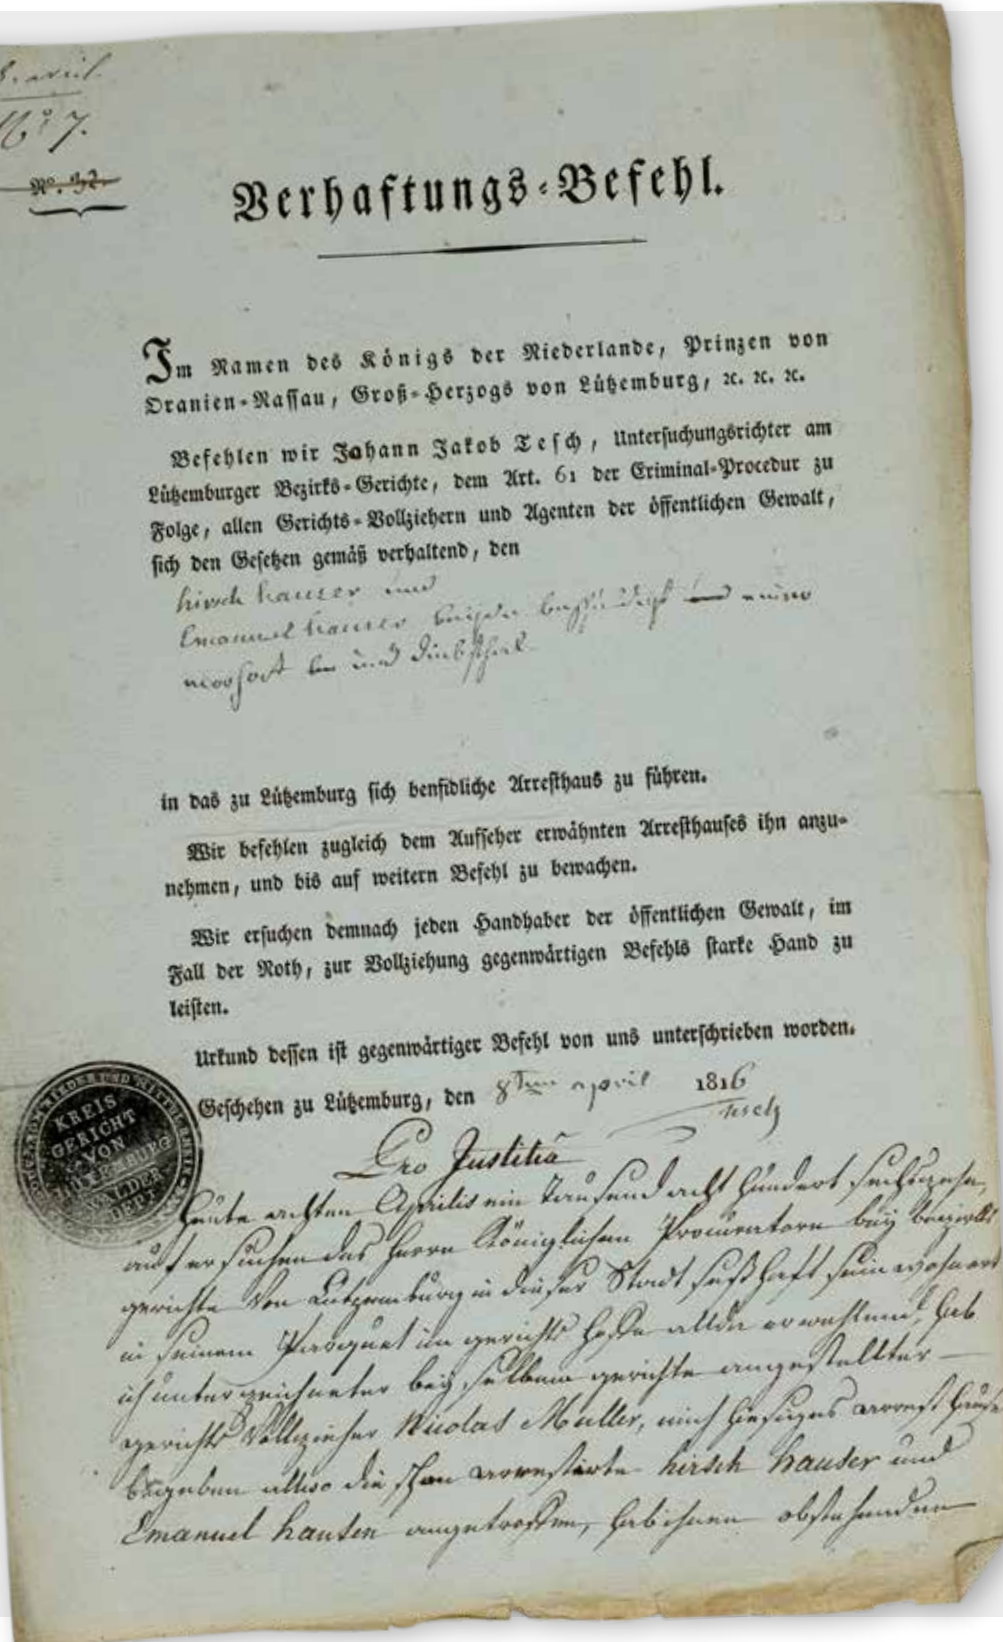 8. avril.
N.º 7.
Nº. 32.
Verhaftungs-Befehl.
Im Namen des Königs der Niederlande, Prinzen von
Oranien-Nassau, Groß-Herzogs von Lützemburg, ꝛc. ꝛc. ꝛc.
Befehlen wir Johann Jakob Tesch, Untersuchungsrichter am
Lützemburger Bezirks-Gerichte, dem Art. 61 der Criminal-Procedur zu
Folge, allen Gerichts-Vollziehern und Agenten der öffentlichen Gewalt,
sich den Gesetzen gemäß verhaltend, den
hirsch hauser und
Emanuel hauser beyde
und
in das zu Lützemburg sich benfidliche Arresthaus zu führen.
Wir befehlen zugleich dem Aufseher erwähnten Arresthauses ihn anzu-
nehmen, und bis auf weitern Befehl zu bewachen.
Wir ersuchen demnach jeden Handhaber der öffentlichen Gewalt, im
Fall der Noth, zur Vollziehung gegenwärtigen Befehls starke Hand zu
leisten.
Urkund dessen ist gegenwärtiger Befehl von uns unterschrieben worden.
Geschehen zu Lützemburg, den 8ten april 1816
Tesch
KREIS
GERICHT
VON
LUXEMBURG
WÄLDER
DEPT
Pro Justitiâ
Heute achten Aprilis ein Tausend acht hundert sechszehn,
auf ersuchen des Herrn Königlichen Procuratorn bey bezirks
gerichte von Lützemburg in dieser Stadt seßhaft sein wohnort
in seinem Parquet im gerichts allda erwählend, hab
ich unterzeichneter bey selbem gerichte angestellter
gerichts Vollzieher Nicolas Muller, mich hiesiges arrest hause
begeben allwo die schon arrestirte hirsch hauser und
Emanuel hauser angetroffen, hab ihnen obstehenden